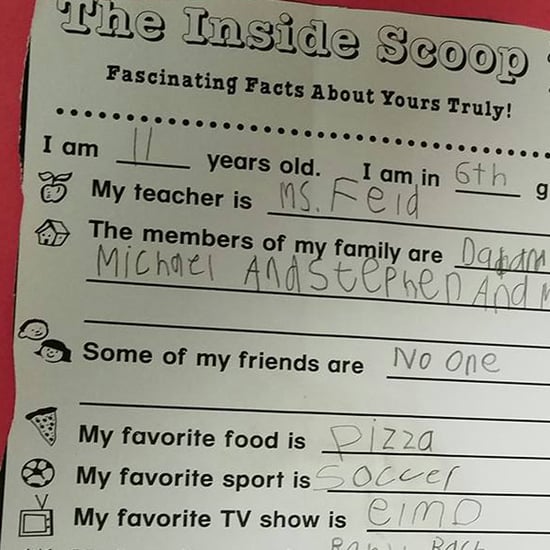 The Inside Scoop
Fascinating Facts About Yours Truly!
I am 11 years old. I am in 6th g
My teacher is Ms. Feid
The members of my family are
Michael And Stephen And
Some of my friends are No one
My favorite food is pizza
My favorite sport is Soccer
My favorite TV show is elmo